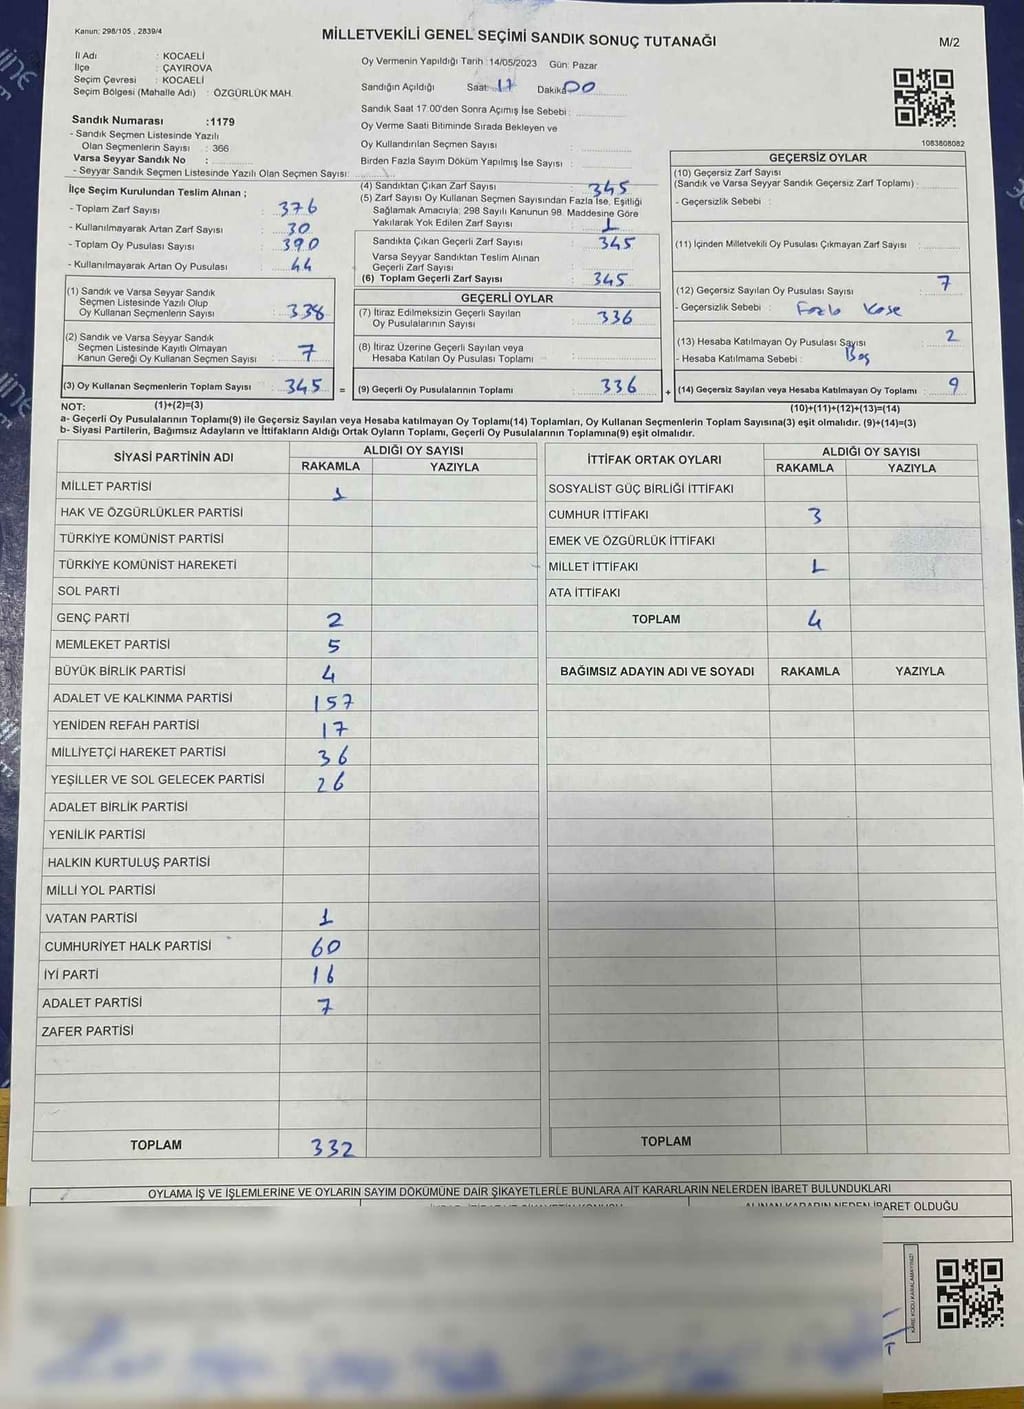 Kanun: 298/105 , 2839/4
MİLLETVEKİLİ GENEL SEÇİMİ SANDIK SONUÇ TUTANAĞI
M/2
İl Adı : KOCAELİ
İlçe : ÇAYIROVA
Seçim Çevresi : KOCAELİ
Seçim Bölgesi (Mahalle Adı) : ÖZGÜRLÜK MAH.
Sandık Numarası :1179
- Sandık Seçmen Listesinde Yazılı
Olan Seçmenlerin Sayısı : 366
Varsa Seyyar Sandık No :
- Seyyar Sandık Seçmen Listesinde Yazılı Olan Seçmen Sayısı:
Oy Vermenin Yapıldığı Tarih :14/05/2023 Gün: Pazar
Sandığın Açıldığı Saat: 17 Dakika 00
Sandık Saat 17.00'den Sonra Açımış İse Sebebi :
Oy Verme Saati Bitiminde Sırada Bekleyen ve
Oy Kullandırılan Seçmen Sayısı :
Birden Fazla Sayım Döküm Yapılmış İse Sayısı :
1083808082
İlçe Seçim Kurulundan Teslim Alınan ;
- Toplam Zarf Sayısı : 376
- Kullanılmayarak Artan Zarf Sayısı : 30
- Toplam Oy Pusulası Sayısı : 390
- Kullanılmayarak Artan Oy Pusulası : 44
(1) Sandık ve Varsa Seyyar Sandık
Seçmen Listesinde Yazılı Olup
Oy Kullanan Seçmenlerin Sayısı : 338
(2) Sandık ve Varsa Seyyar Sandık
Seçmen Listesinde Kayıtlı Olmayan
Kanun Gereği Oy Kullanan Seçmen Sayısı : 7
(3) Oy Kullanan Seçmenlerin Toplam Sayısı : 345 =
(4) Sandıktan Çıkan Zarf Sayısı : 345
(5) Zarf Sayısı Oy Kullanan Seçmen Sayısından Fazla İse, Eşitliği
Sağlamak Amacıyla; 298 Sayılı Kanunun 98. Maddesine Göre
Yakılarak Yok Edilen Zarf Sayısı : 1
Sandıkta Çıkan Geçerli Zarf Sayısı : 345
Varsa Seyyar Sandıktan Teslim Alınan
Geçerli Zarf Sayısı :
(6) Toplam Geçerli Zarf Sayısı : 345
GEÇERLİ OYLAR
(7) İtiraz Edilmeksizin Geçerli Sayılan
Oy Pusulalarının Sayısı : 336
(8) İtiraz Üzerine Geçerli Sayılan veya
Hesaba Katılan Oy Pusulası Toplamı :
(9) Geçerli Oy Pusulalarının Toplamı : 336 +
GEÇERSİZ OYLAR
(10) Geçersiz Zarf Sayısı
(Sandık ve Varsa Seyyar Sandık Geçersiz Zarf Toplamı) :
- Geçersizlik Sebebi :
(11) İçinden Milletvekili Oy Pusulası Çıkmayan Zarf Sayısı :
(12) Geçersiz Sayılan Oy Pusulası Sayısı : 7
- Geçersizlik Sebebi : Fazla Kase
(13) Hesaba Katılmayan Oy Pusulası Sayısı : 2
- Hesaba Katılmama Sebebi : Boş
(14) Geçersiz Sayılan veya Hesaba Katılmayan Oy Toplamı : 9
NOT: (1)+(2)=(3)
(10)+(11)+(12)+(13)=(14)
a- Geçerli Oy Pusulalarının Toplamı(9) ile Geçersiz Sayılan veya Hesaba katılmayan Oy Toplamı(14) Toplamları, Oy Kullanan Seçmenlerin Toplam Sayısına(3) eşit olmalıdır. (9)+(14)=(3)
b- Siyasi Partilerin, Bağımsız Adayların ve İttifakların Aldığı Ortak Oyların Toplamı, Geçerli Oy Pusulalarının Toplamına(9) eşit olmalıdır.
SİYASİ PARTİNİN ADI
ALDIĞI OY SAYISI
RAKAMLA YAZIYLA
MİLLET PARTİSİ 1
HAK VE ÖZGÜRLÜKLER PARTİSİ
TÜRKİYE KOMÜNİST PARTİSİ
TÜRKİYE KOMÜNİST HAREKETİ
SOL PARTİ
GENÇ PARTİ 2
MEMLEKET PARTİSİ 5
BÜYÜK BİRLİK PARTİSİ 4
ADALET VE KALKINMA PARTİSİ 157
YENİDEN REFAH PARTİSİ 17
MİLLİYETÇİ HAREKET PARTİSİ 36
YEŞİLLER VE SOL GELECEK PARTİSİ 26
ADALET BİRLİK PARTİSİ
YENİLİK PARTİSİ
HALKIN KURTULUŞ PARTİSİ
MİLLİ YOL PARTİSİ
VATAN PARTİSİ 1
CUMHURİYET HALK PARTİSİ 60
İYİ PARTİ 16
ADALET PARTİSİ 7
ZAFER PARTİSİ
TOPLAM 332
İTTİFAK ORTAK OYLARI
ALDIĞI OY SAYISI
RAKAMLA YAZIYLA
SOSYALİST GÜÇ BİRLİĞİ İTTİFAKI
CUMHUR İTTİFAKI 3
EMEK VE ÖZGÜRLÜK İTTİFAKI
MİLLET İTTİFAKI 1
ATA İTTİFAKI
TOPLAM 4
BAĞIMSIZ ADAYIN ADI VE SOYADI RAKAMLA YAZIYLA
TOPLAM
OYLAMA İŞ VE İŞLEMLERİNE VE OYLARIN SAYIM DÖKÜMÜNE DAİR ŞİKAYETLERLE BUNLARA AİT KARARLARIN NELERDEN İBARET BULUNDUKLARI
ALINAN KARARIN NEDEN İBARET OLDUĞU
KARE KODU KARALAMAYINIZ!